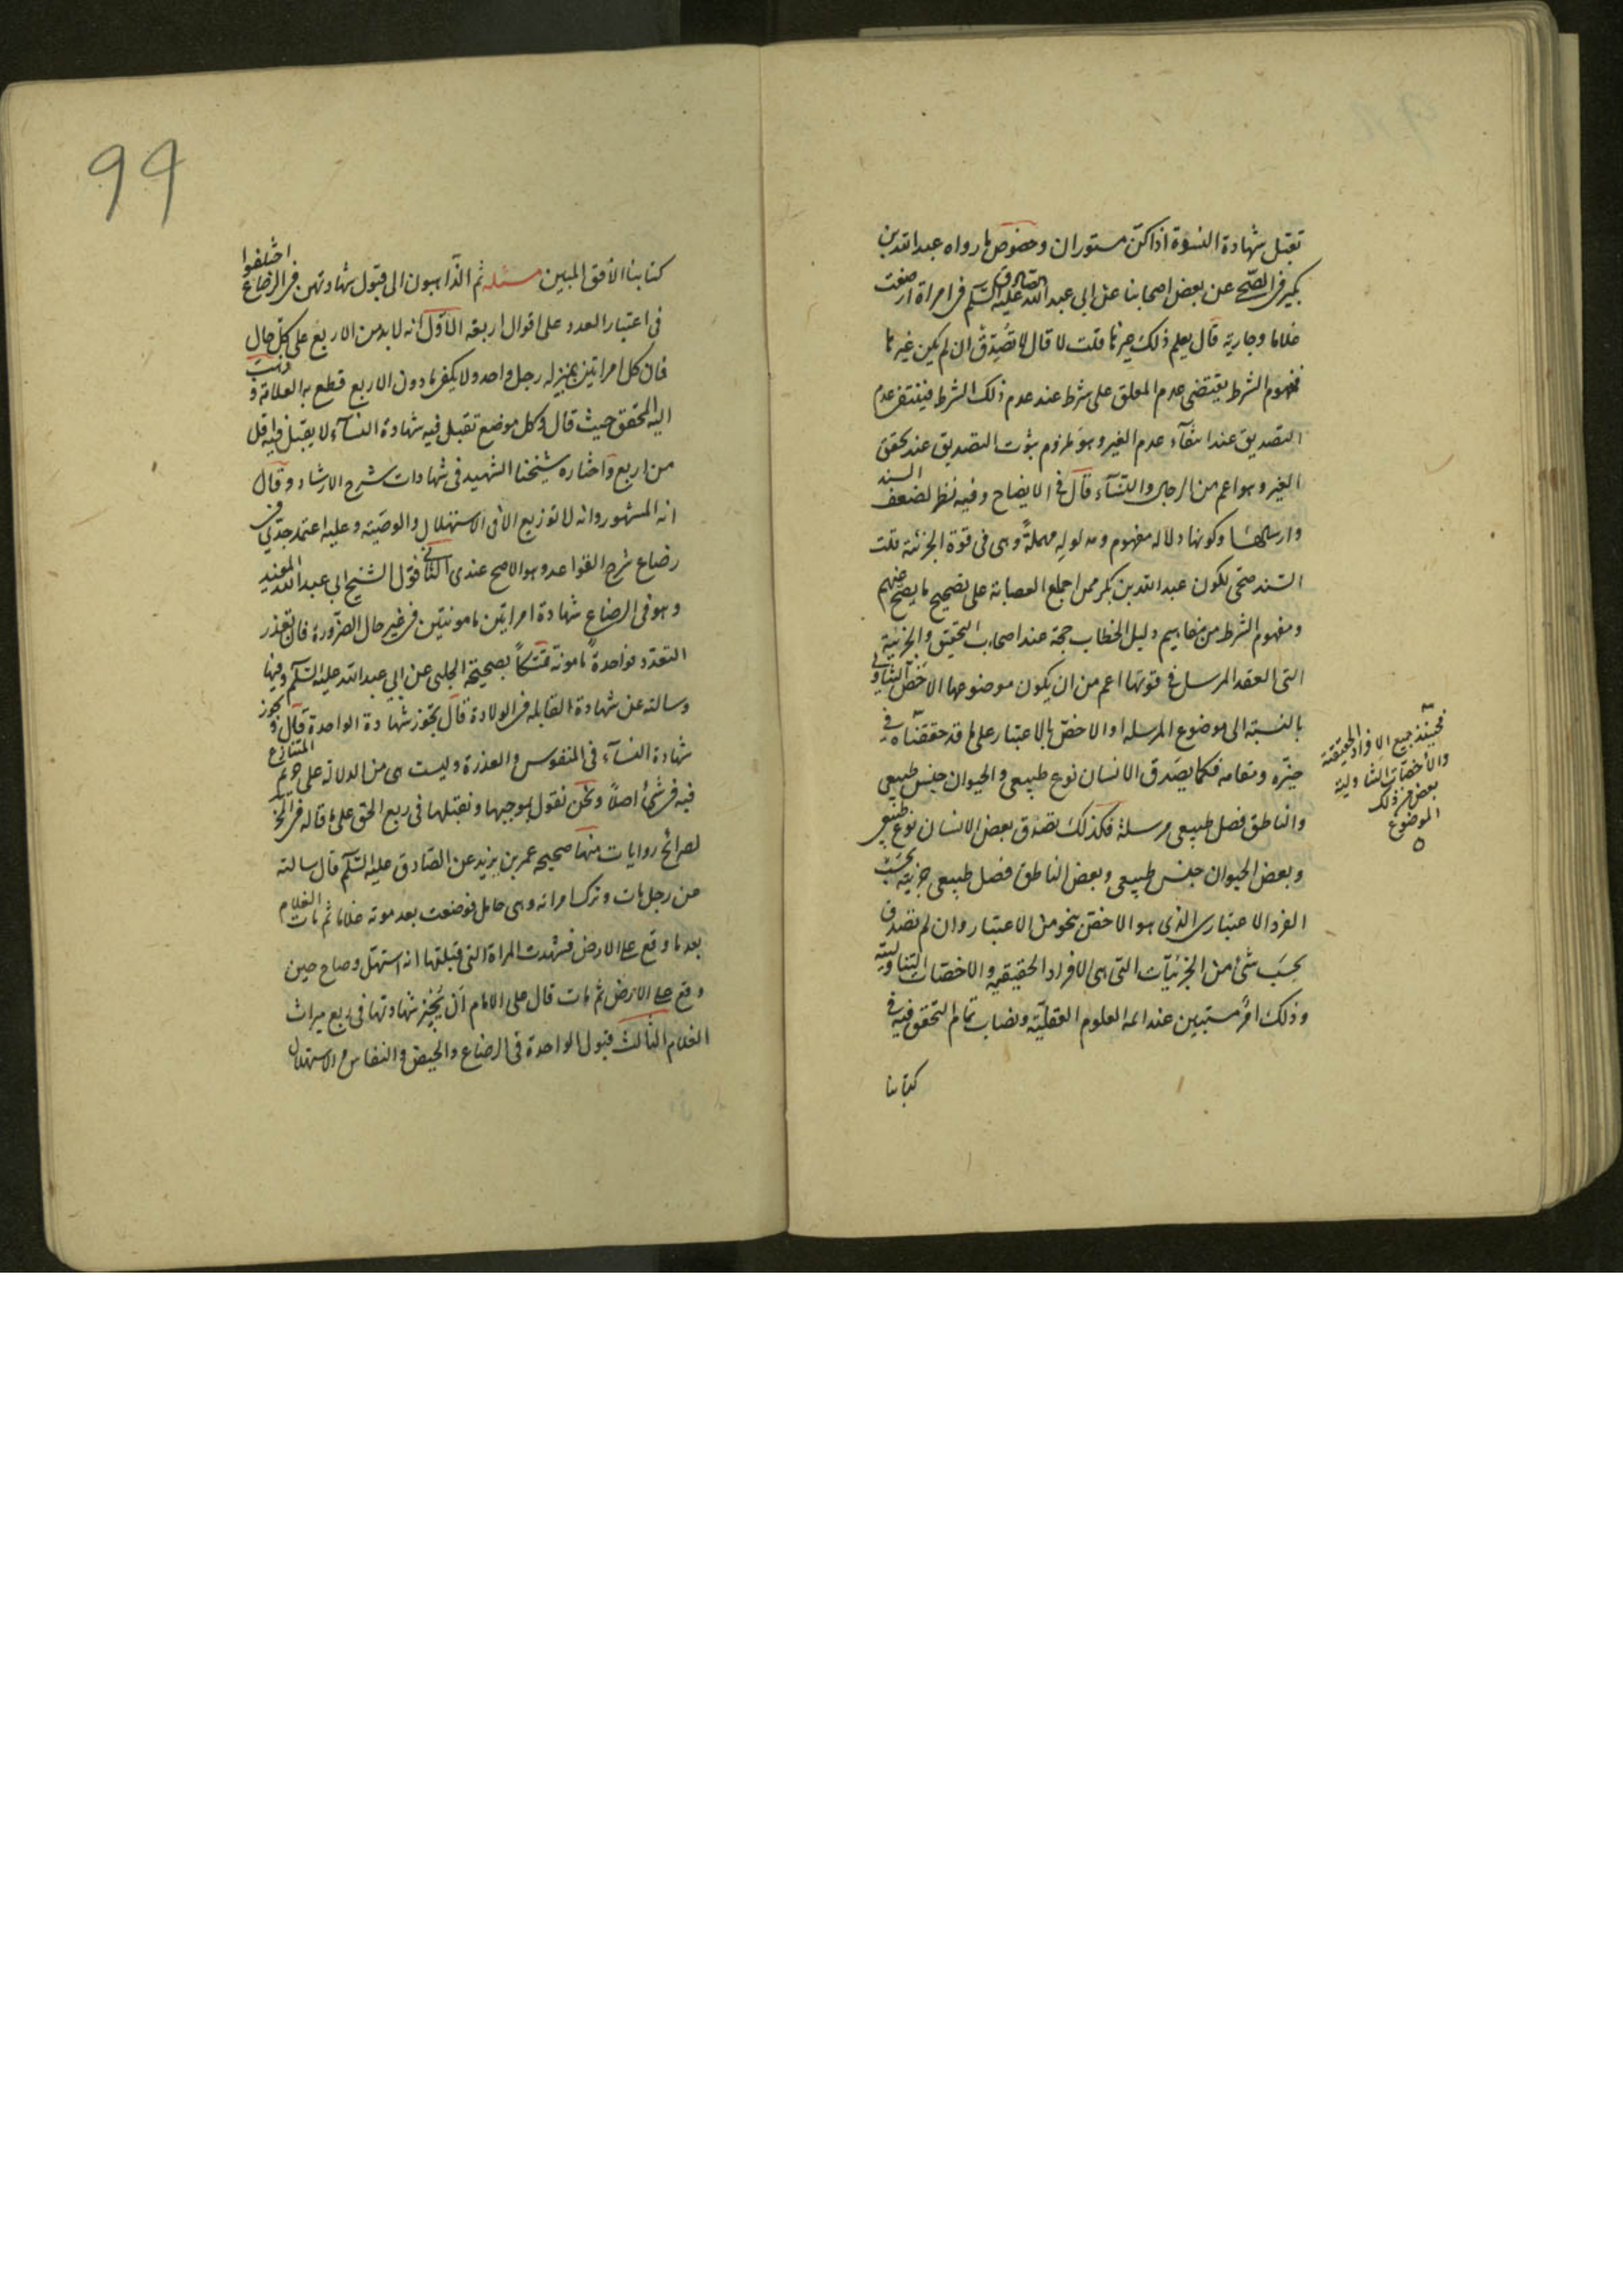 تقبل شهادة النسوة اذا كن مستوران وخصوص ما رواه عبد الله بن
بكير فى الصحيح عن بعض اصحابنا عن ابى عبد الله الصادق عليه السلم فى امراة ارضعت
غلاما وجارية قال يعلم ذلك غيرها قلت لا قال لا تصدق ان لم يكن غيرها
فمفهوم الشرط يقتضى عدم المعلق على شرط عند عدم ذلك الشرط فينتفى عدم
التصديق عند انتفآء عدم الغير وهو ملزوم ثبوت التصديق عند تحقق
الغير وهو اعم من الرجال والنسآء قال فى الايضاح وفيه نظر لضعف السند
وارسالها وكونها دلاله مفهوم ومدلوله مهملة وهى فى قوة الجزئية قلت
السند صحى لكون عبد الله بن بكير ممن اجمع العصابة على تصحيح ما يصح عنهم
ومفهوم الشرط من مفاهيم دليل الخطاب حجة عند اصحاب التحقيق والجزئية
التى العقد المرسل فى قوتها اعم من ان يكون موضوعها الاخص التناولى
بالنسبة الى موضوع المرسله او الاخص بالاعتبار على ما قد حققناه فى
حيزه ومقامه فكما يصدق الانسان نوع طبيعى والحيوان جنس طبيعى
والناطق فصل طبيعى مرسلة فكذلك تصدق بعض الانسان نوع طبيعى
وبعض الحيوان جنس طبيعى وبعض الناطق فصل طبيعى جزئية بحسب
الفرد الاعتبارى الذى هو الاخص بنحو من الاعتبار وان لم تصدق
بحسب شئ من الجزئيات التى هى الافراد الحقيقيه والاخصات التناولية
وذلك امر مستبين عند ائمة العلوم العقلية ونصاب تمام التحقق فيه فى
كتابنا
فحينئذ جميع الافراد الحقيقية
والاخصات التناولية
بعض من ذلك
الموضوع
٥
99
كتابنا الافق المبين مسئله ثم الذاهبون الى قبول شهادتهن فى الرضاع اختلفوا
فى اعتبار العدد على اقوال اربعة الاول انه لابد من الاربع على كل حال
فان كل امراتين بمنزله رجل واحد ولا يكفى ما دون الاربع قطع به العلامة وذهب
اليه المحقق حيث قال وكل موضع تقبل فيه شهادة النسآء لا يقبل فيه اقل
من اربع واختاره شيخنا الشهيد فى شهادات شرح الارشاد وقال
انه المشهور وانه لا توزيع الا فى الاستهلال والوصية وعليه اعتمد جدى فى
رضاع شرح القواعد وهو الاصح عندى الثانى قول الشيخ ابى عبد الله المفيد
وهو فى الرضاع شهادة امراتين مامونتين فى غير حال الضرورة فان تعذر
التعدد فواحدة مامونة تمسكا بصحيحة الحلبى عن ابى عبد الله عليه السلم وفيها
وسالته عن شهادة القابله فى الولادة قال تجوز شهادة الواحدة قال وتجوز
شهادة النسآء فى المنفوس والعذرة وليست هى من الدلالة على حريم المتنازع
فيه فى شئ اصلا ونحن نقول بموجبها ونقبلها فى ربع الحق على ما قاله فى
لصرائح روايات منها صحيحه عمر بن يزيد عن الصادق عليه السلم قال سالته
عن رجل مات وترك امراته وهى حامل فوضعت بعد موته غلاما ثم مات الغلام
بعد ما وقع على الارض فشهدت المراة التى قبلتها انه استهل وصاح حين
وقع على الارض ثم مات قال على الامام ان يجيز شهادتها فى ربع ميراث
الغلام الثالث قبول الواحدة فى الرضاع والحيض والنفاس والاستهلال